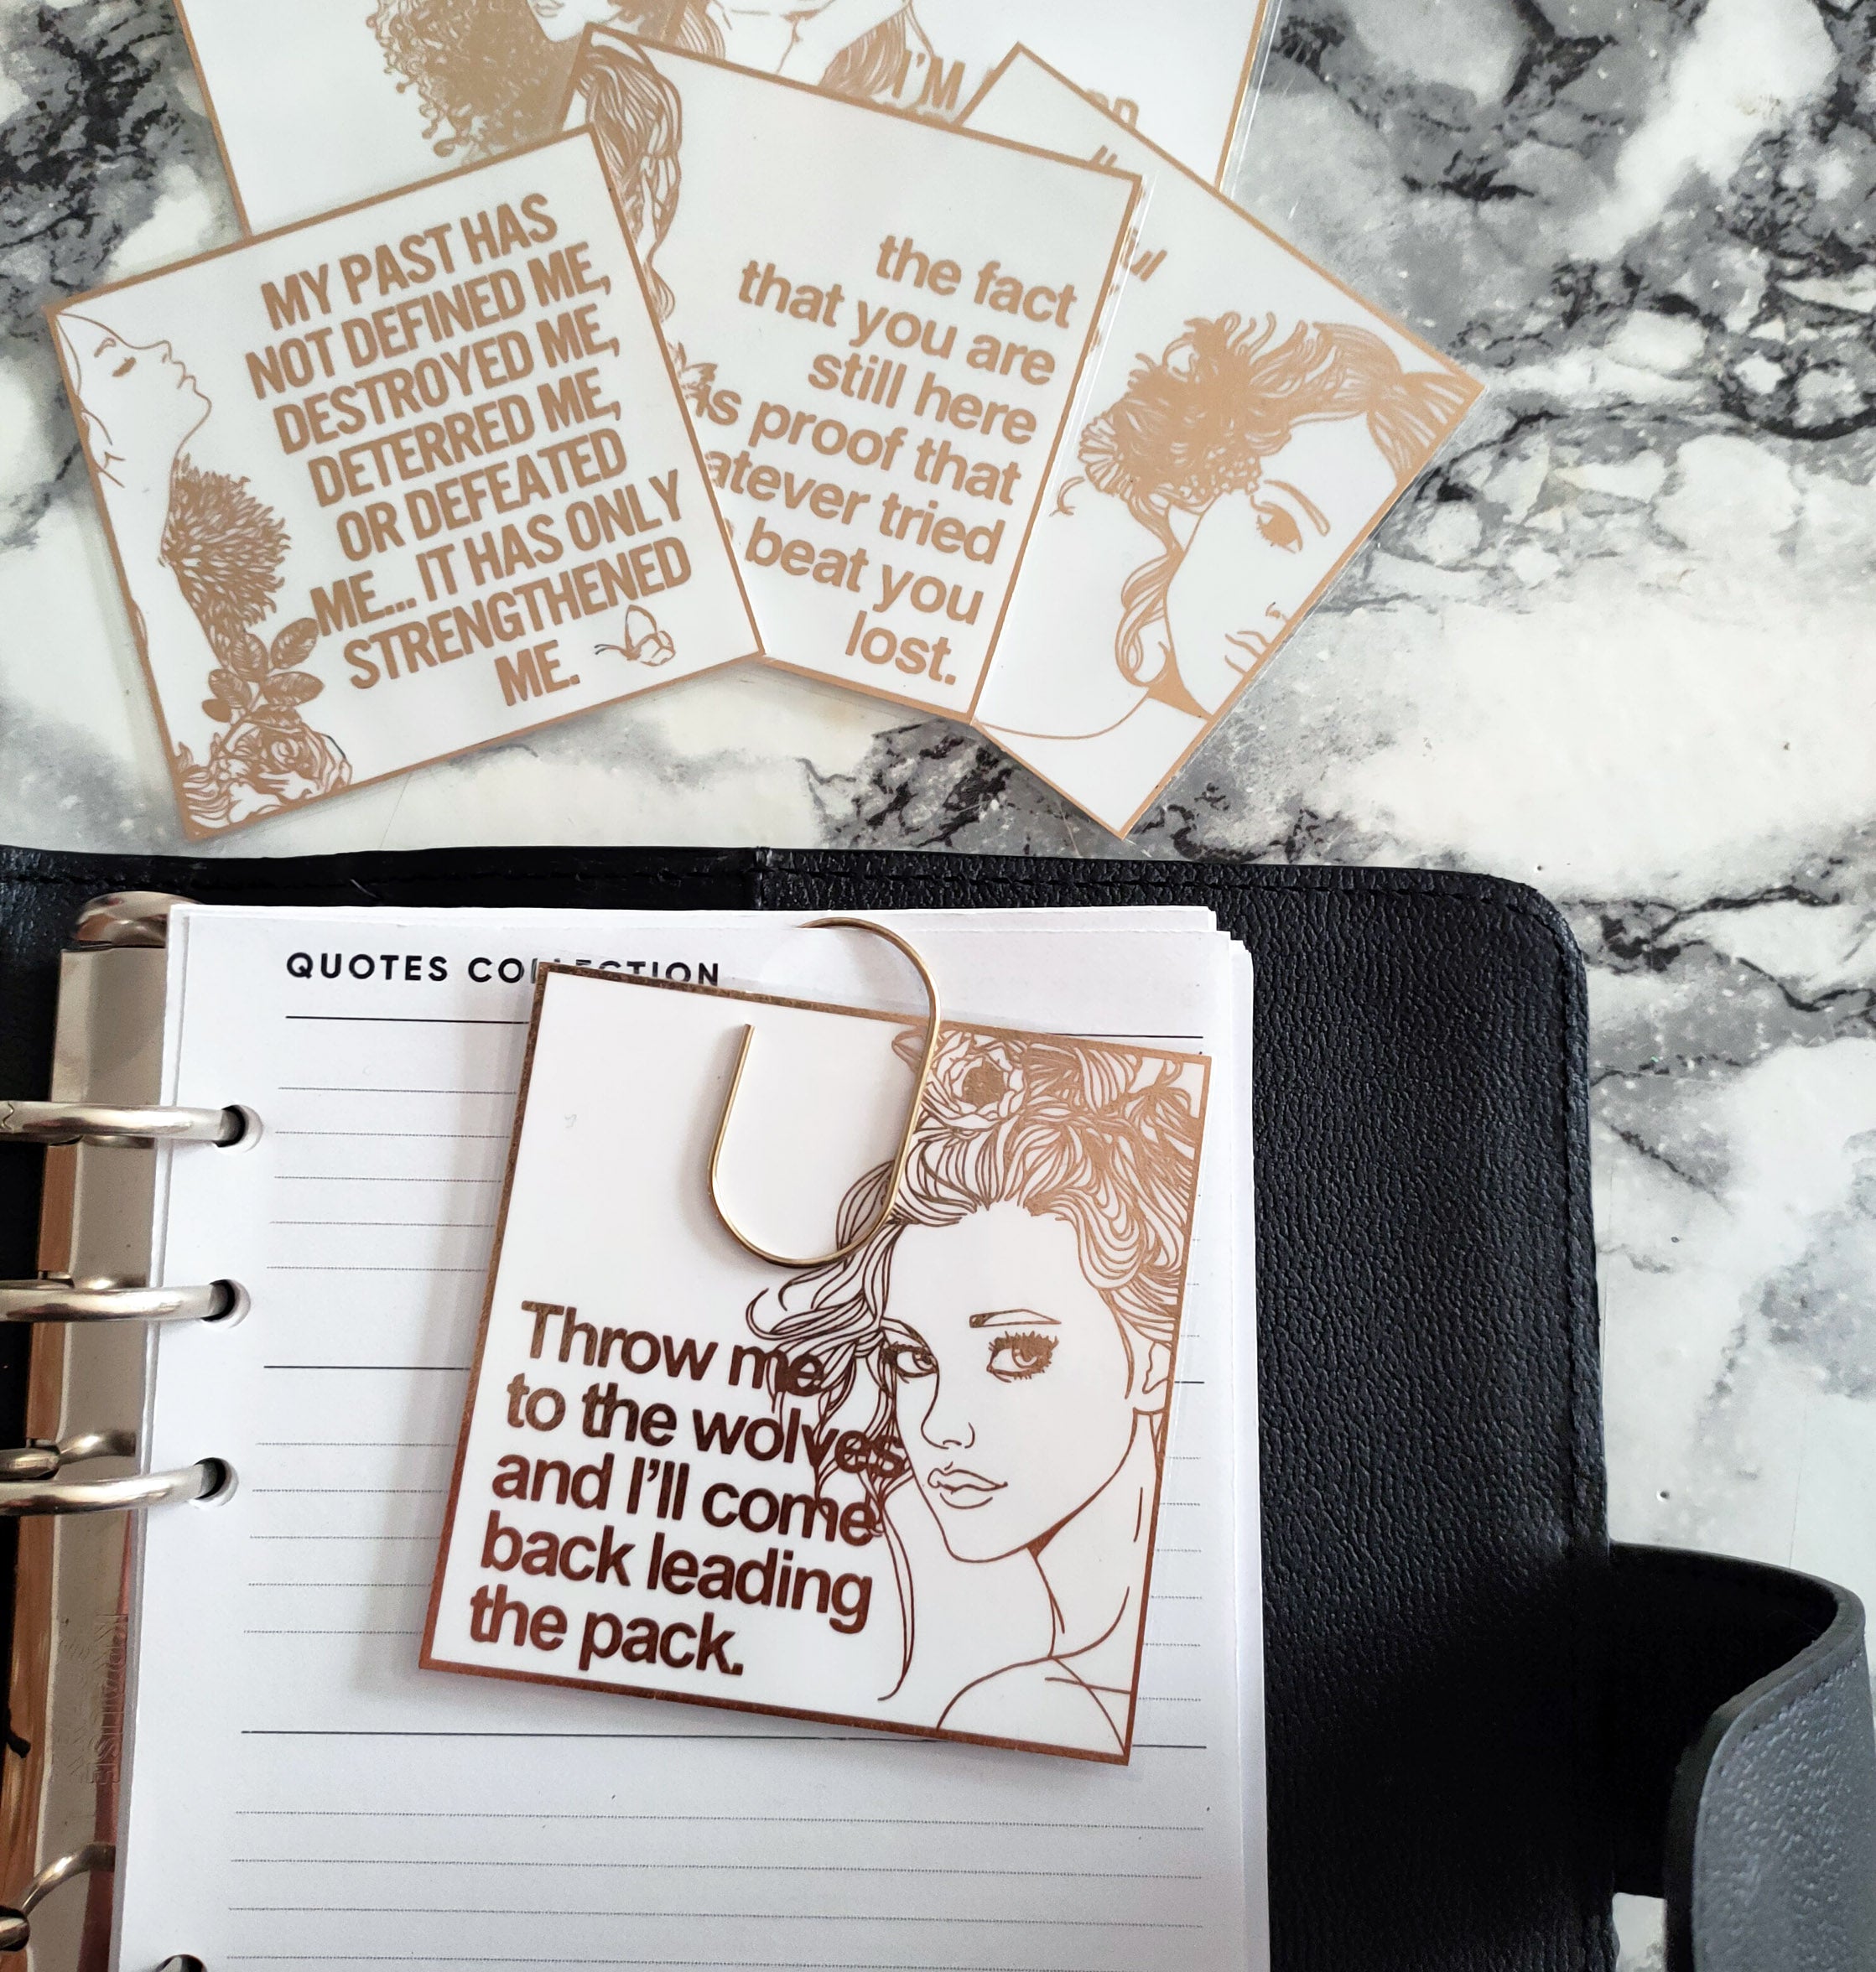 I'M
MY PAST HAS
NOT DEFINED ME,
DESTROYED ME,
DETERRED ME,
OR DEFEATED
ME... IT HAS ONLY
STRENGTHENED
ME.
the fact
that you are
still here
is proof that
tried
beat you
lost.
QUOTES COLLECTION
Throw me
to the wolves
and I'll come
back leading
the pack.